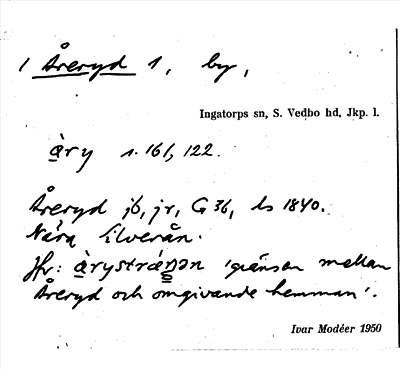 1 Åreryd 1, by,
Ingatorps sn, S. Vedbo hd, Jkp. l.
àry s. 161, 122.
Åreryd jb, jr, G 36, ls 1840.
Nära Silverån.
Jfr: àrystræ̀ŋən 'gränsen mellan
Åreryd och omgivande hemman'.
Ivar Modéer 1950